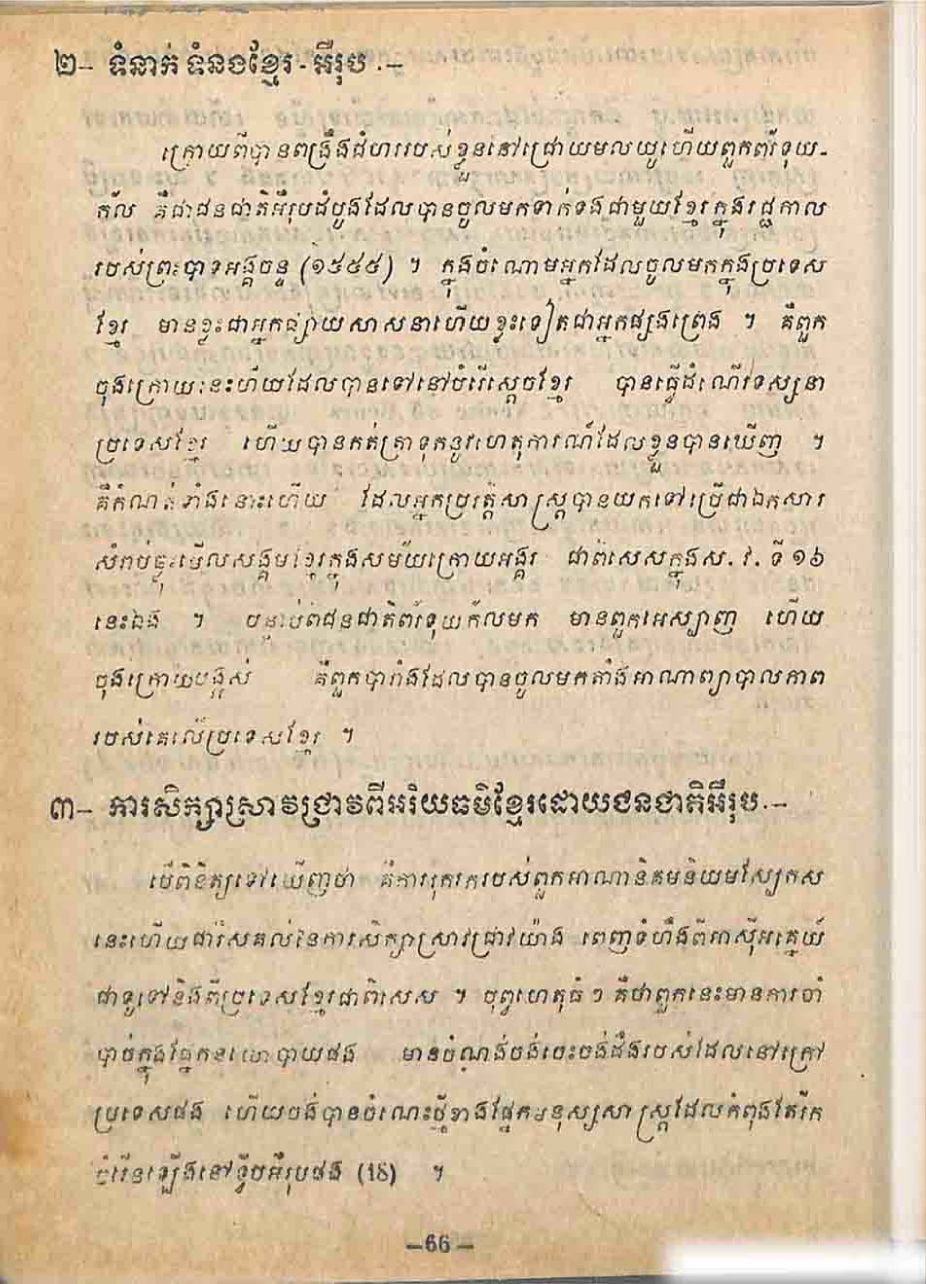 ២- ទំនាក់ទំនងខ្មែរ-អឺរុប .-
ក្រោយពីបានពង្រឹងជំហររបស់ខ្លួននៅជ្រោយមលយូហើយពួកព័រទុយ-
ក័ល គឺជាជនជាតិអឺរុបដំបូងដែលបានចូលមកទាក់ទងជាមួយខ្មែរក្នុងរជ្ជកាល
របស់ព្រះបាទអង្គចន្ទ (១៥៥៥) ។ ក្នុងចំណោមអ្នកដែលចូលមកក្នុងប្រទេស
ខ្មែរ មានខ្លះជាអ្នកផ្សាយសាសនាហើយខ្លះទៀតជាអ្នកផ្សងព្រេង ។ គឺពួក
ចុងក្រោយនេះហើយដែលបានទៅនៅបំរើស្តេចខ្មែរ បានធ្វើដំណើរទស្សនា
ប្រទេសខ្មែរ ហើយបានកត់ត្រាទុកនូវហេតុការណ៍ដែលខ្លួនបានឃើញ ។
គឺកំណត់ទាំងនោះហើយ ដែលអ្នកប្រវត្តិសាស្ត្របានយកទៅប្រើជាឯកសារ
សំរាប់ឆ្លុះមើលសង្គមខ្មែរក្នុងសម័យក្រោយអង្គរ ជាពិសេសក្នុងស.វ. ទី១៦
នេះឯង ។ បន្ទាប់ពីជនជាតិព័រទុយក័លមក មានពួកអេស្ប៉ាញ ហើយ
ចុងក្រោយបង្អស់ គឺពួកបារាំងដែលបានចូលមកតាំងអាណាព្យាបាលភាព
របស់គេលើប្រទេសខ្មែរ ។
៣- ការសិក្សាស្រាវជ្រាវពីអរិយធម៌ខ្មែរដោយជនជាតិអឺរុប.-
បើពិនិត្យទៅឃើញថា គឺការរុករករបស់ពួកអាណានិគមនិយមស្បែកស
នេះហើយជារឹសគល់នៃការសិក្សាស្រាវជ្រាវយ៉ាង ពេញទំហឹងពីអាស៊ីអគ្នេយ៍
ជាទូទៅនិងពីប្រទេសខ្មែរជាពិសេស ។ បុព្វហេតុធំៗ គឺថាពួកនេះមានការចាំ
បាច់ក្នុងផ្នែកនយោបាយផង មានចំណង់ចង់ចេះចង់ដឹងរបស់ដែលនៅក្រៅ
ប្រទេសផង ហើយចង់បានចំណេះថ្មីខាងផ្នែកមនុស្សសាស្ត្រដែលកំពុងតែរីក
ចំរើនឡើងនៅទ្វីបអឺរុបផង (18) ។
-66-